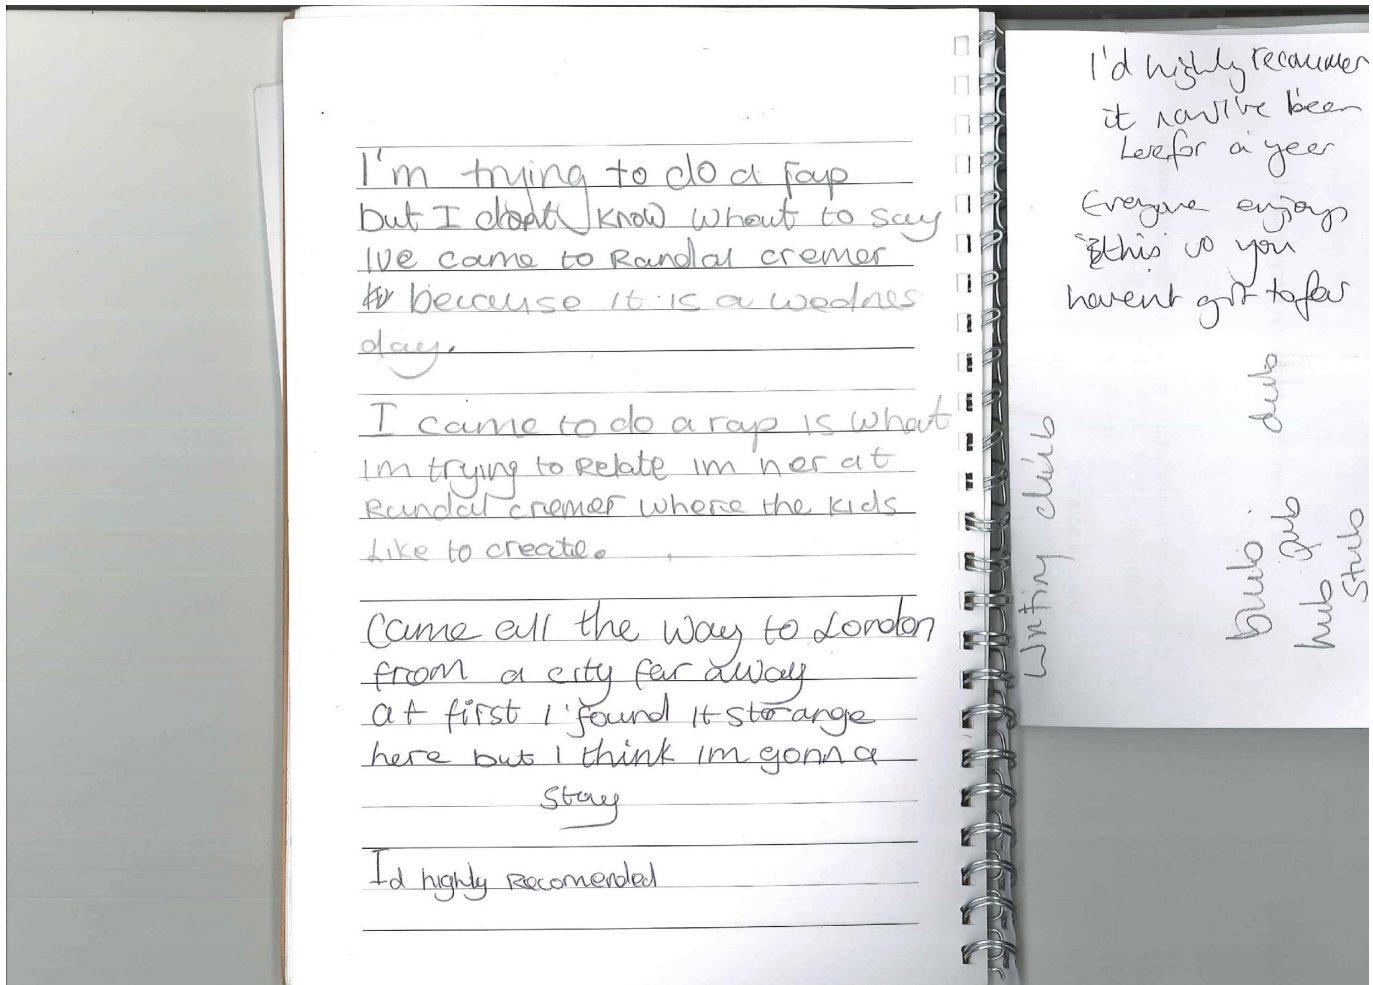 I'm trying to do a rap
but I dont know whout to say
Ive came to Randal cremer
because it is a wednes
day.
I came to do a rap is what
im trying to Relate im her at
Randal cremer where the kids
Like to create.
Came all the way to London
from a city far away
at first I found it strange
here but I think im gonna
stay
Id highly Recomended
I'd highly recommen
it now I've been
here for a year
Everyone enjoys
this so you
havent got to fear
Writing club
club
pub
Stub
hub